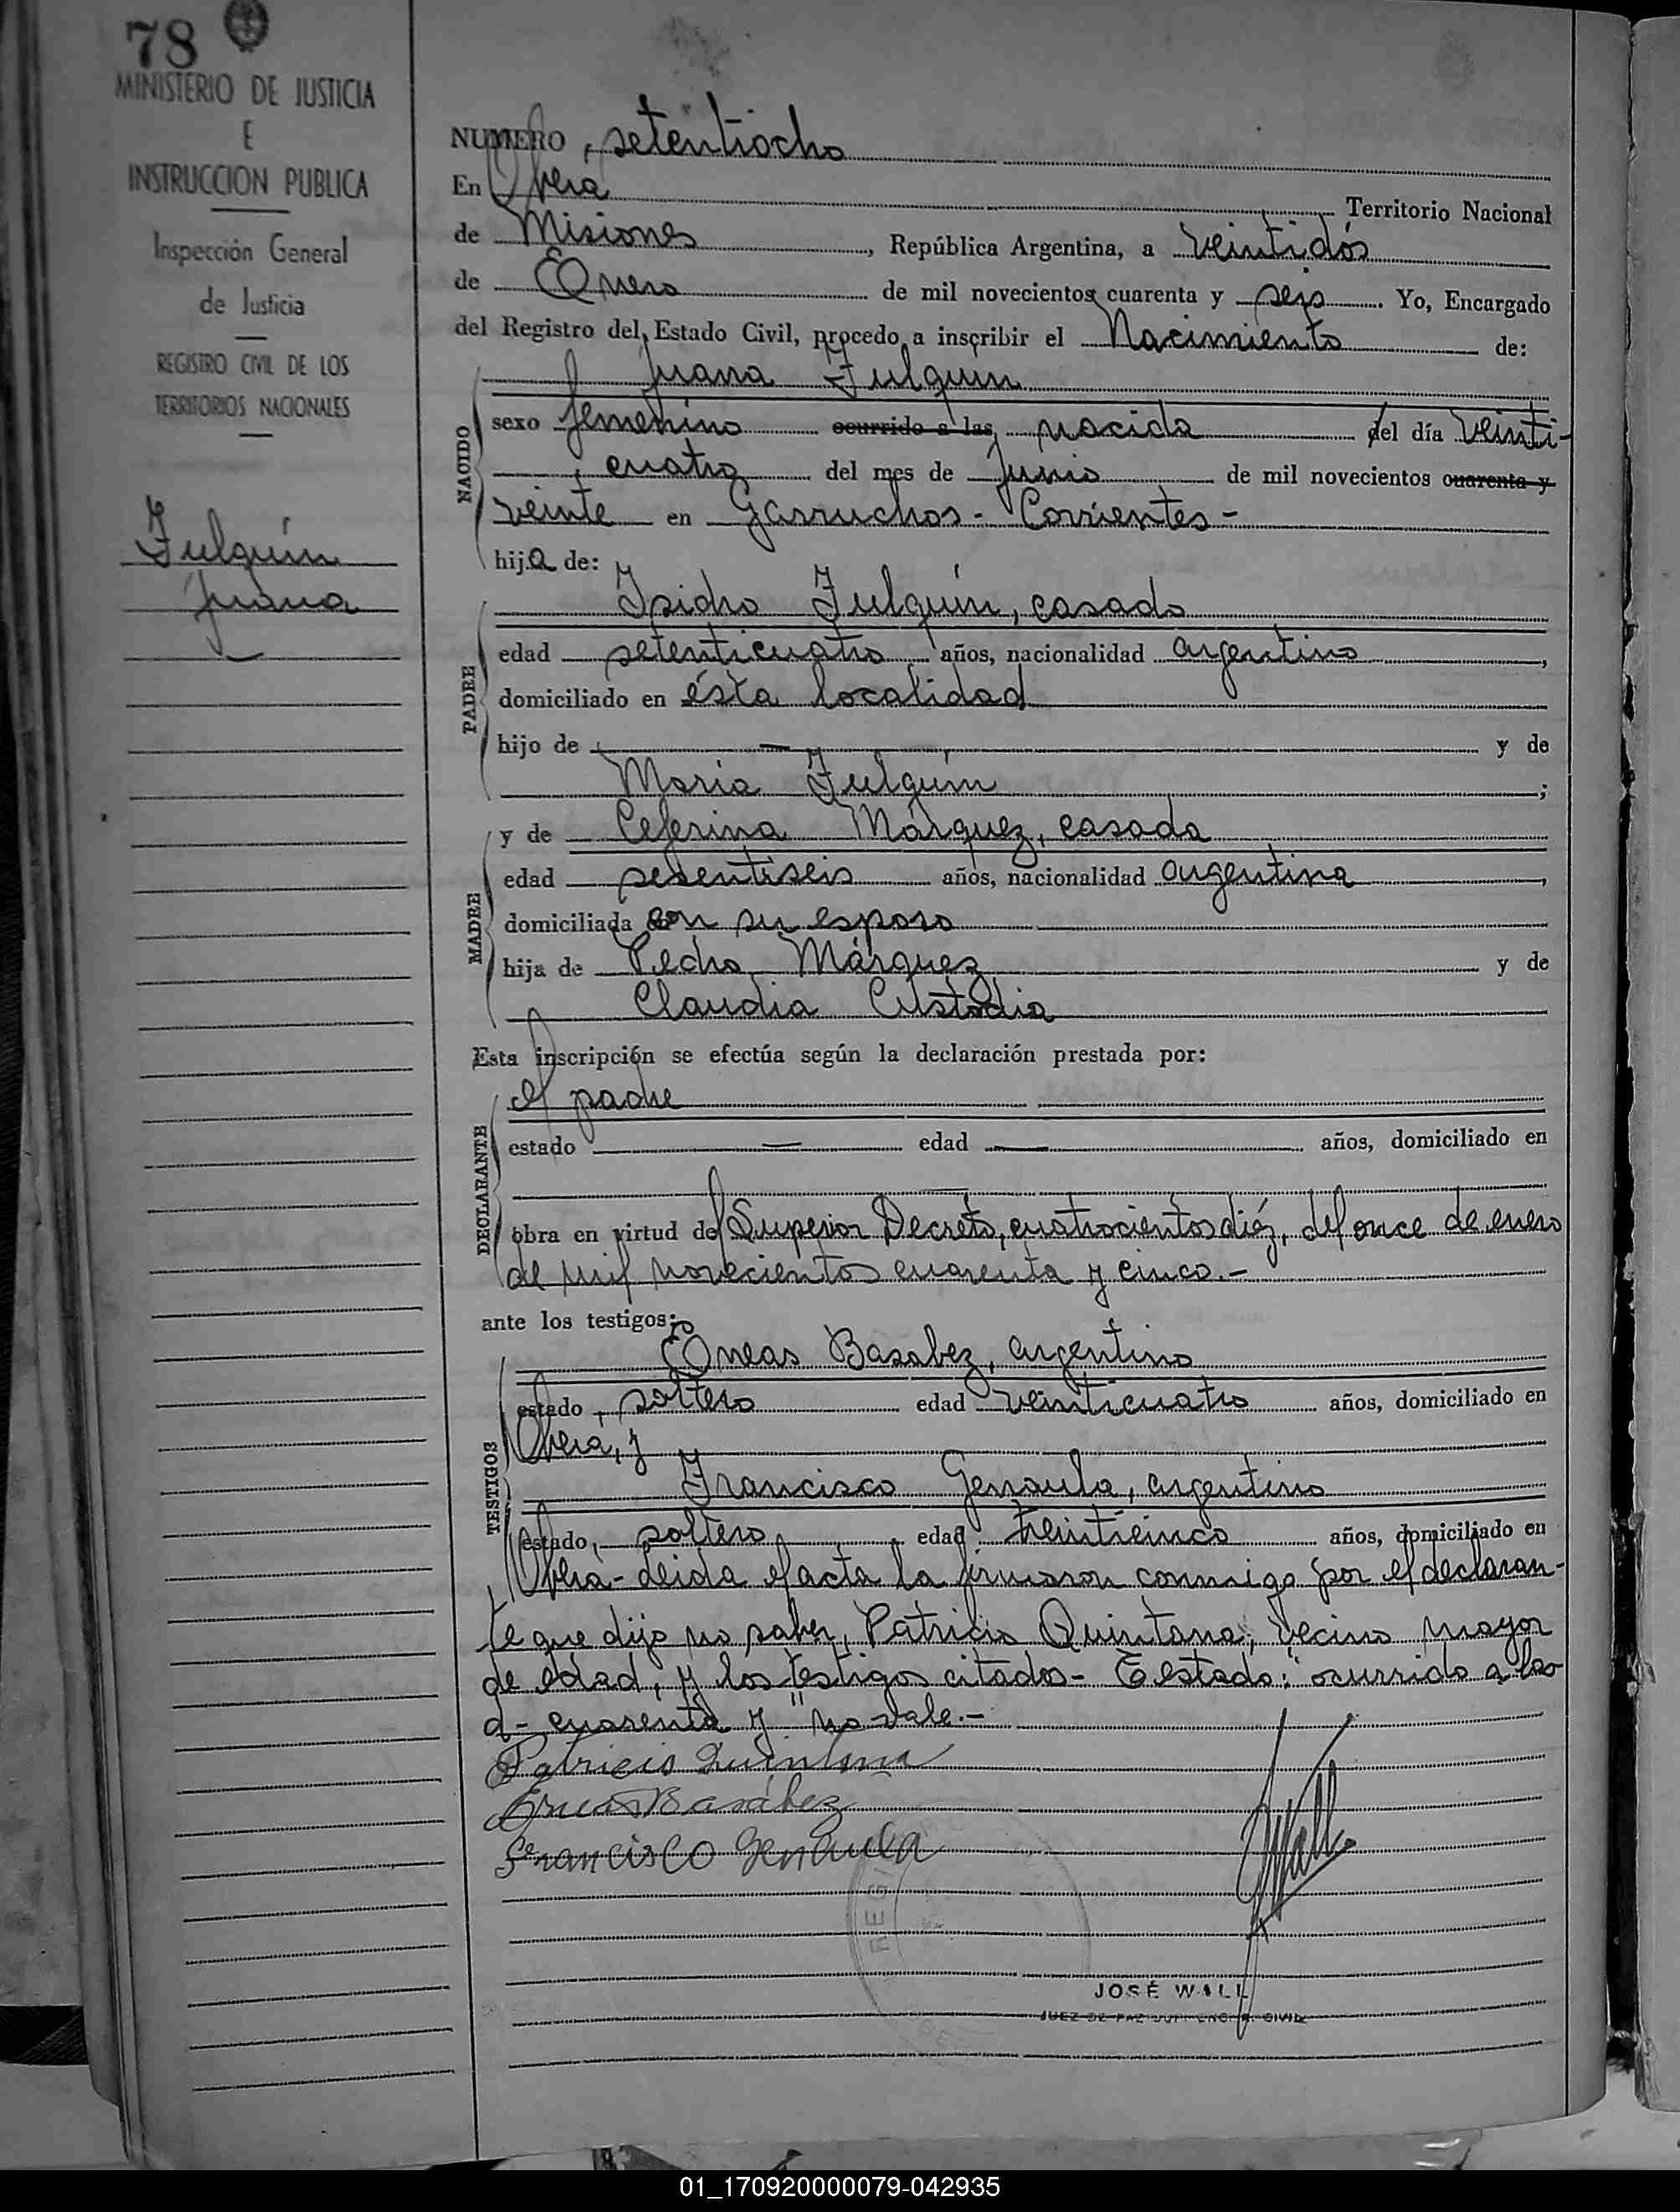 78
MINISTERIO DE JUSTICIA
E
INSTRUCCION PUBLICA
Inspección General
de Justicia
REGISTRO CIVIL DE LOS
TERRITORIOS NACIONALES
Fulquin
Juana
NUMERO setentiocho
En Obera Territorio Nacional
de Misiones, República Argentina, a veintidós
de Enero de mil novecientos cuarenta y seis. Yo, Encargado
del Registro del Estado Civil, procedo a inscribir el Nacimiento de:
Juana Fulquin
NACIDO
sexo femenino ocurrido a las nacida del día veinti-
cuatro del mes de Junio de mil novecientos cuarenta y
veinte en Garruchos - Corrientes -
hija de:
PADRE
Isidro Fulquin, casado
edad setenticuatro años, nacionalidad argentino,
domiciliado en ésta localidad
hijo de — y de
Maria Fulquin;
MADRE
y de Ceferina Márquez, casada
edad sesentiseis años, nacionalidad argentina,
domiciliada con su esposo
hija de Pedro Márquez y de
Claudia Custodia
Esta inscripción se efectúa según la declaración prestada por:
DECLARANTE
el padre
estado — edad — años, domiciliado en
obra en virtud del Superior Decreto, cuatrocientos diéz, del once de enero
de mil novecientos cuarenta y cinco.-
ante los testigos:
TESTIGOS
Eneas Basabez, argentino
estado, soltero edad veinticuatro años, domiciliado en
Obera, y
Francisco Genaula, argentino
estado, soltero edad treinticinco años, domiciliado en
Oberá - Leida el acta la firmaron conmigo por el declaran-
te que dijo no saber, Patricio Quintana, vecino mayor
de edad, y los testigos citados - Testado: "ocurrido a las
d - cuarenta y" no vale.-
Patricio Quintana
Eneas Basábez
Francisco Genaula
JWall
REGI
JOSÉ WALL
JUEZ DE PAZ SUPL. ENC. R. CIVIL
01_170920000079-042935